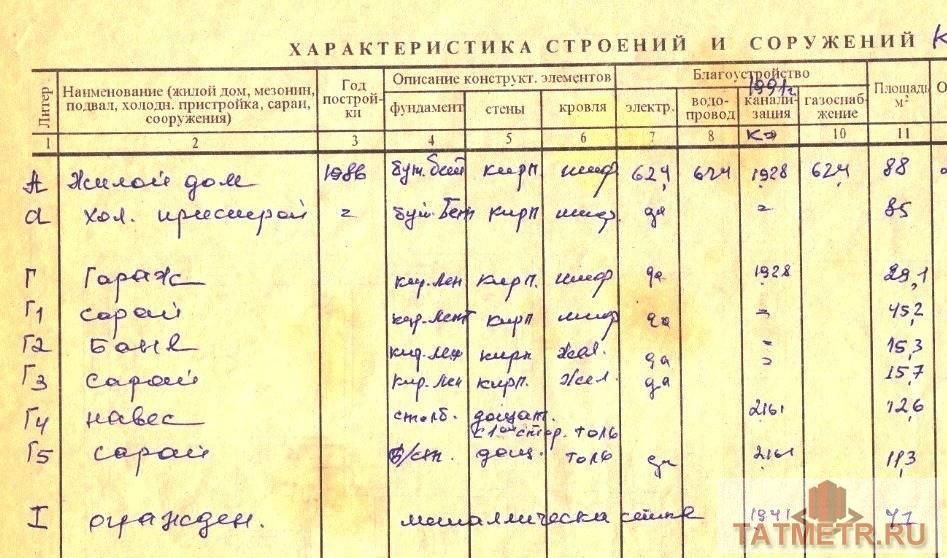 ХАРАКТЕРИСТИКА СТРОЕНИЙ И СОРУЖЕНИЙ К
Литер Наименование (жилой дом, мезонин, подвал, холодн. пристройка, сараи, сооружения) Год построй-ки Описание конструкт. элементов Благоустройство Площадь м²
фундамент стены кровля электр. водо-провод канали-зация газоснаб-жение
1991г
1 2 3 4 5 6 7 8 10 11
А Жилой дом 1986 бут. бет кирп. шиф 624 624 1928 624 88
а хол. пристрой бут. бет кирп шиф. да 85
Г Гараж кир. лен кирп. шиф да 1928 29,1
Г1 сарай кир. лент кирп шиф да 45,2
Г2 Баня кир. лен кирп жел. да 15,3
Г3 сарай кир. лен кирп. жел. да 15,7
Г4 навес столб. дощат. 2161 12,6
с 1ой стор. толь
Г5 сарай б/ст. дощ. толь да 2161 11,3
I огражден. металлическа сетка 1941
TATMETR.RU